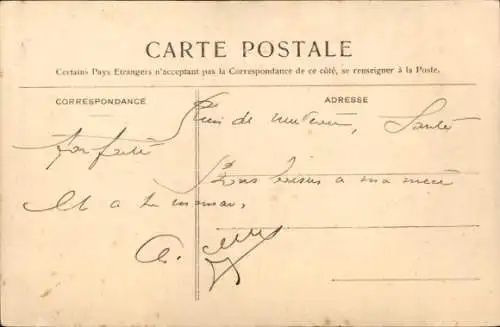 CARTE POSTALE
Certains Pays Etrangers n'acceptant pas la Correspondance de ce côté, se renseigner à la Poste.
CORRESPONDANCE
ADRESSE
de Santé
parfaite
Bons baisers a ma nièce
et a ta maman,
A.